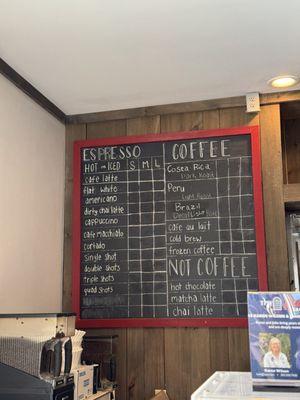 ESPRESSO
HOT or ICED S M L
cafe latte
flat white
americano
dirty chai latte
cappuccino
cafe macchiato
cortado
Single shot
double shots
triple shots
quad shots
COFFEE
Costa Rica
Dark Roast
Peru
Light Roast
Brazil
Decaf
cafe au lait
cold brew
frozen coffee
NOT COFFEE
hot chocolate
matcha latte
chai latte